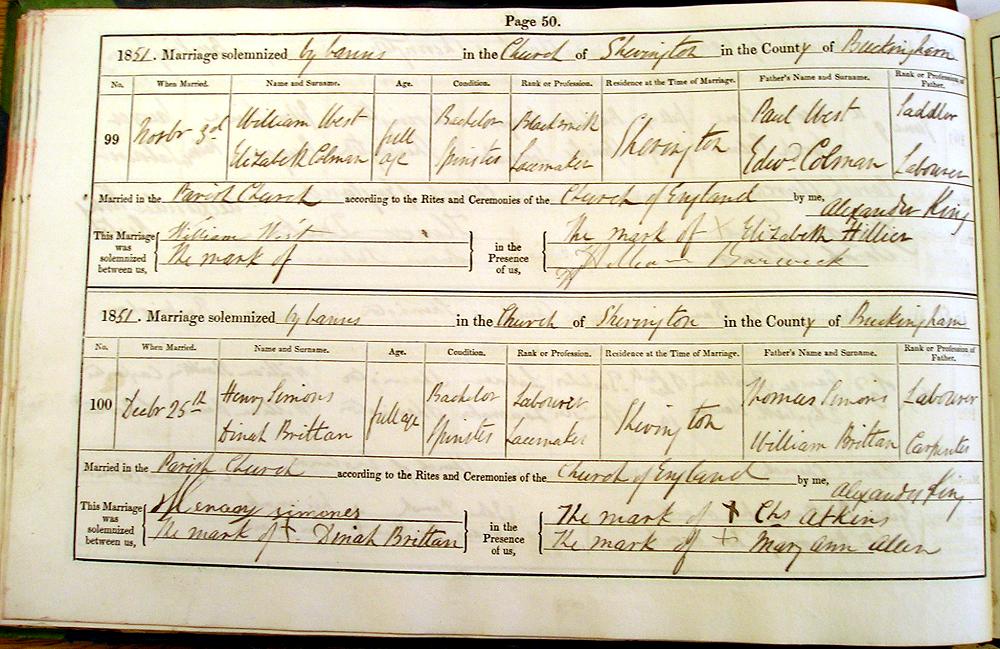 Page 50.
1851. Marriage solemnized by banns in the Church of Sherington in the County of Buckingham
No. When Married. Name and Surname. Age. Condition. Rank or Profession. Residence at the Time of Marriage. Father's Name and Surname. Rank or Profession of Father.
99 Novbr 3d William West full age Bachelor Blacksmith Sherington Paul West Saddler
Elizabeth Colman Spinster Lacemaker Edwd. Colman Labourer
Married in the Parish Church according to the Rites and Ceremonies of the Church of England by me, Alexander King
This Marriage was solemnized between us, William West in the Presence of us, The mark of X Elizabeth Hillier
The mark of William Barwick
1851. Marriage solemnized by banns in the Church of Sherington in the County of Buckingham
No. When Married. Name and Surname. Age. Condition. Rank or Profession. Residence at the Time of Marriage. Father's Name and Surname. Rank or Profession of Father.
100 Decbr 25th Henry Simons full age Bachelor Labourer Sherington Thomas Simons Labourer
Dinah Brittan Spinster Lacemaker William Brittan Carpenter
Married in the Parish Church according to the Rites and Ceremonies of the Church of England by me, Alexander King
This Marriage was solemnized between us, simones in the Presence of us, The mark of X Chs Atkins
The mark of + Dinah Brittan The mark of + Mary Ann Allen